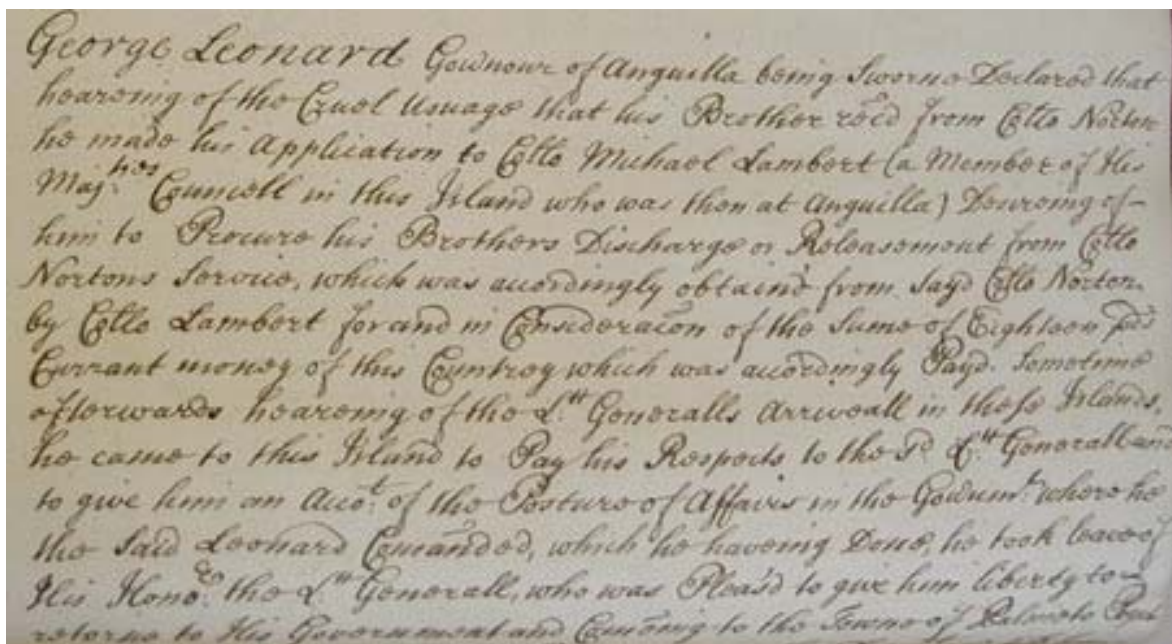 George Leonard Govnour of Anguilla being Sworne Declared that
hearing of the Cruel Usuage that his Brother recd from Collo Norton
he made his Application to Collo Michael Lambert (a Member of His
Majties Councell in this Island who was then at Anguilla) Desireing of
him to Procure his Brothers Discharge or Releasement from Collo
Nortons Service, which was accordingly obtaind from Sayd Collo Norton
by Collo Lambert for and in Consideracon of the Sume of Eighteen pds
Currant money of this Countrey which was accordingly Payd. Sometime
afterwards heareing of the Lt Generalls Arriveall in these Islands,
he came to this Island to Pay his Respects to the Sd Lt Generall and
to give him an Acco.t of the Posture of Affairs in the Govumt. where he
the Said Leonard Comanded, which he haveing Done, he took leave of
His Hono.r the Lt Generall, who was Pleas'd to give him liberty to
returne to His Government and Comeing to the Towne of